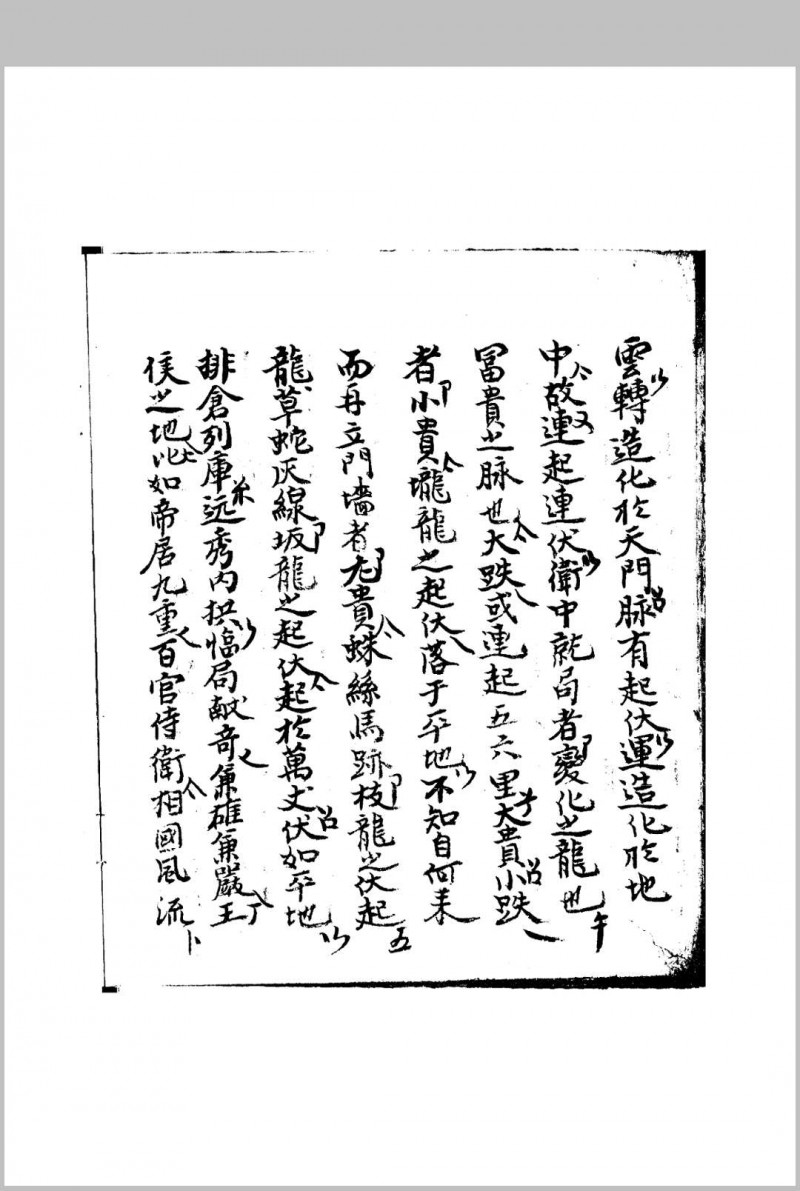 雲轉造化於天門脉有起伏運造化於地
中故連起連伏衛中就局者變化之龍也
冨貴之脉也大跌或連起五六里大貴小跌
者小貴壠龍之起伏落于平地不知自何来
而再立門墻者尤貴蛛絲馬跡枝龍之伏起
龍草蛇灰線坂龍之起伏起於萬丈伏如平地
排倉列庫远秀内拱臨局献奇兼雄兼嚴王
侯之地也比如帝居九重百官侍衛相國風流